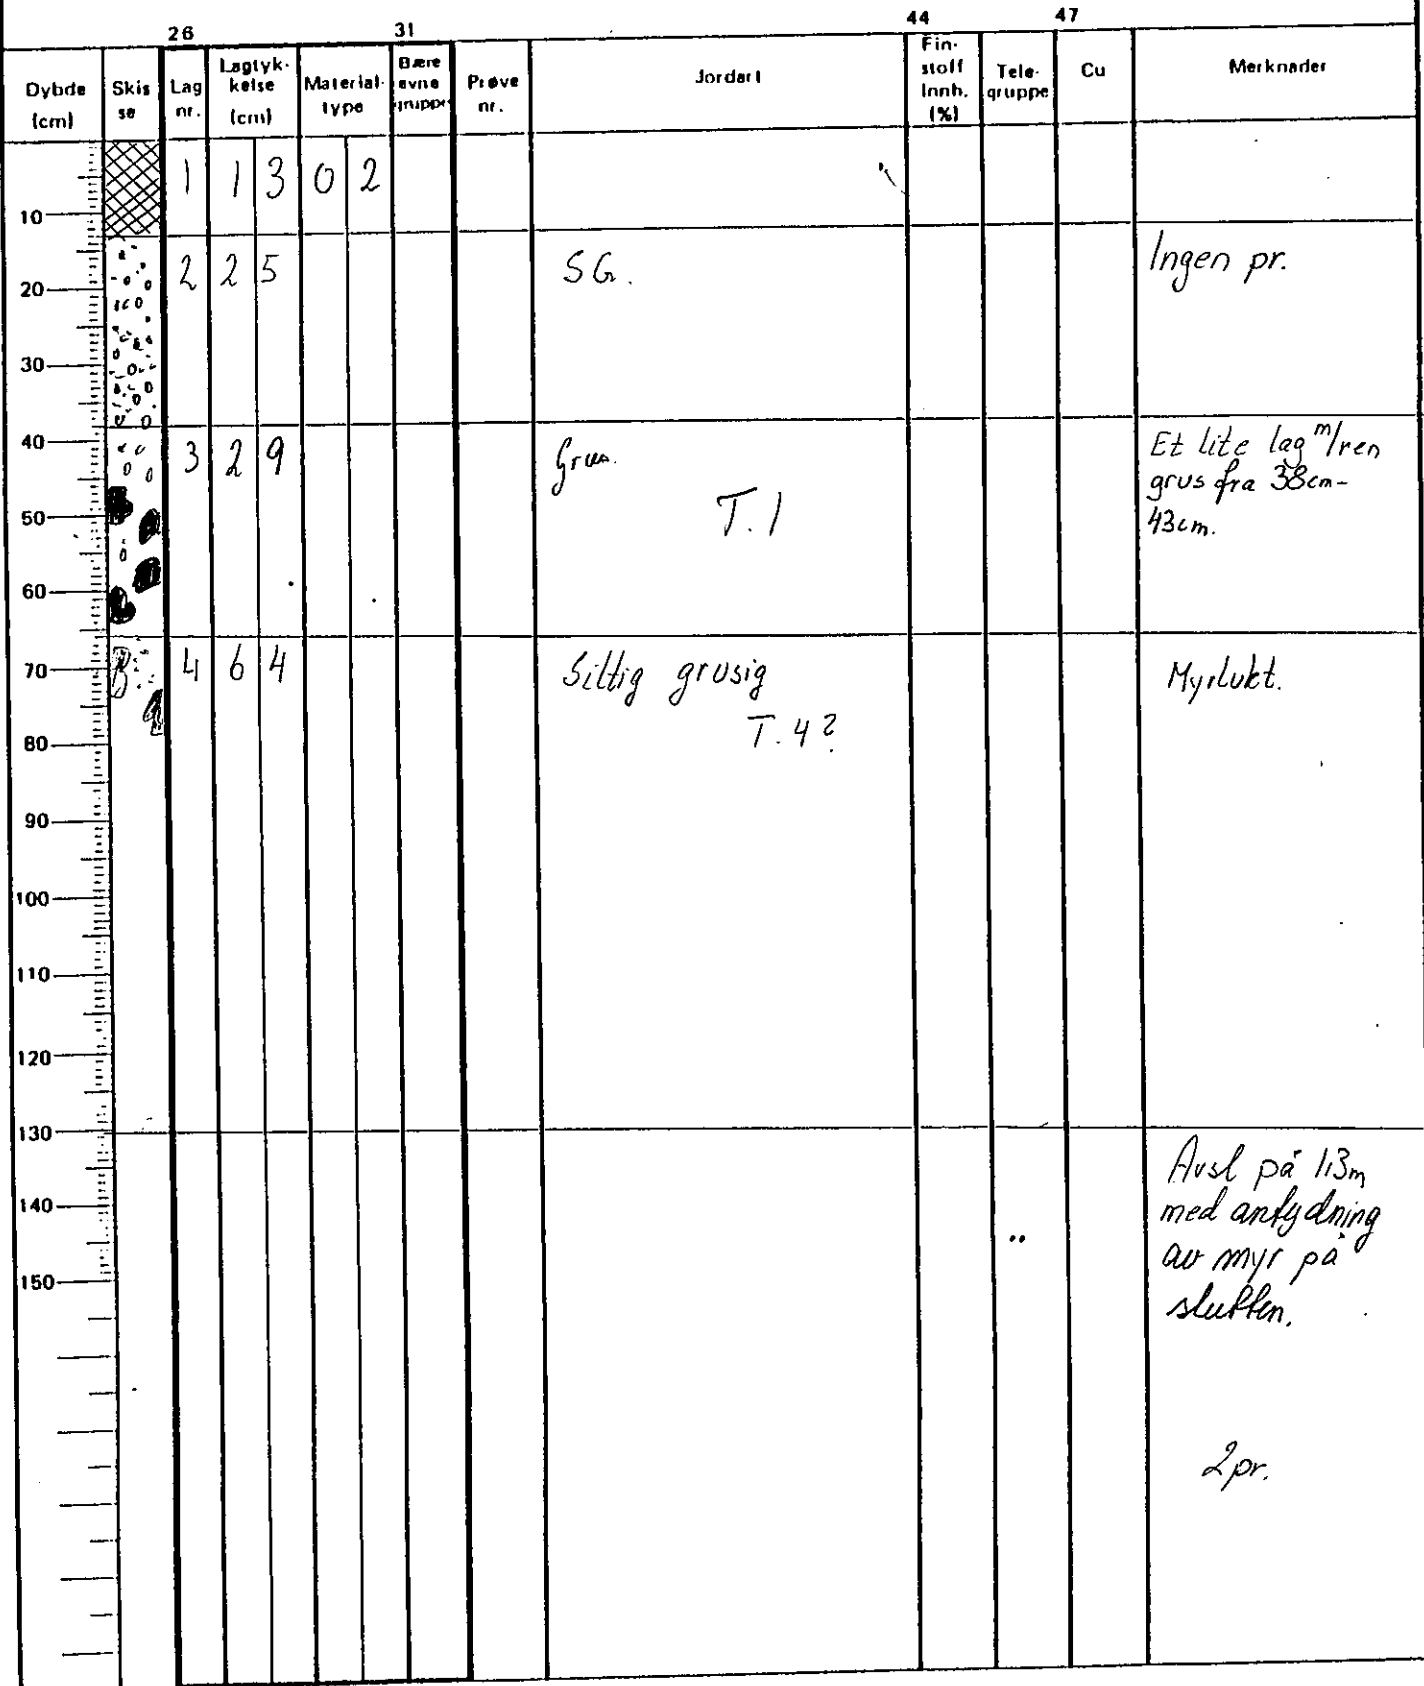 26 31 44 47
Dybde (cm) Skis se Lag nr. Lagtyk- kelse (cm) Material- type Bære evne gruppe Prøve nr. Jordart Fin- stoff Innh. (%) Tele- gruppe Cu Merknader
1 1 3 0 2
10
2 2 5 SG. Ingen pr.
20
30
40
3 2 9 Grus. Et lite lag m/ren
grus fra 38cm-
50 T.1 43cm.
60
70 4 6 4 Siltig grusig Myrlukt.
80 T.4?
90
100
110
120
130
Avsl på 1,3m
140 med antydning
av myr på
150 slutten.
2pr.